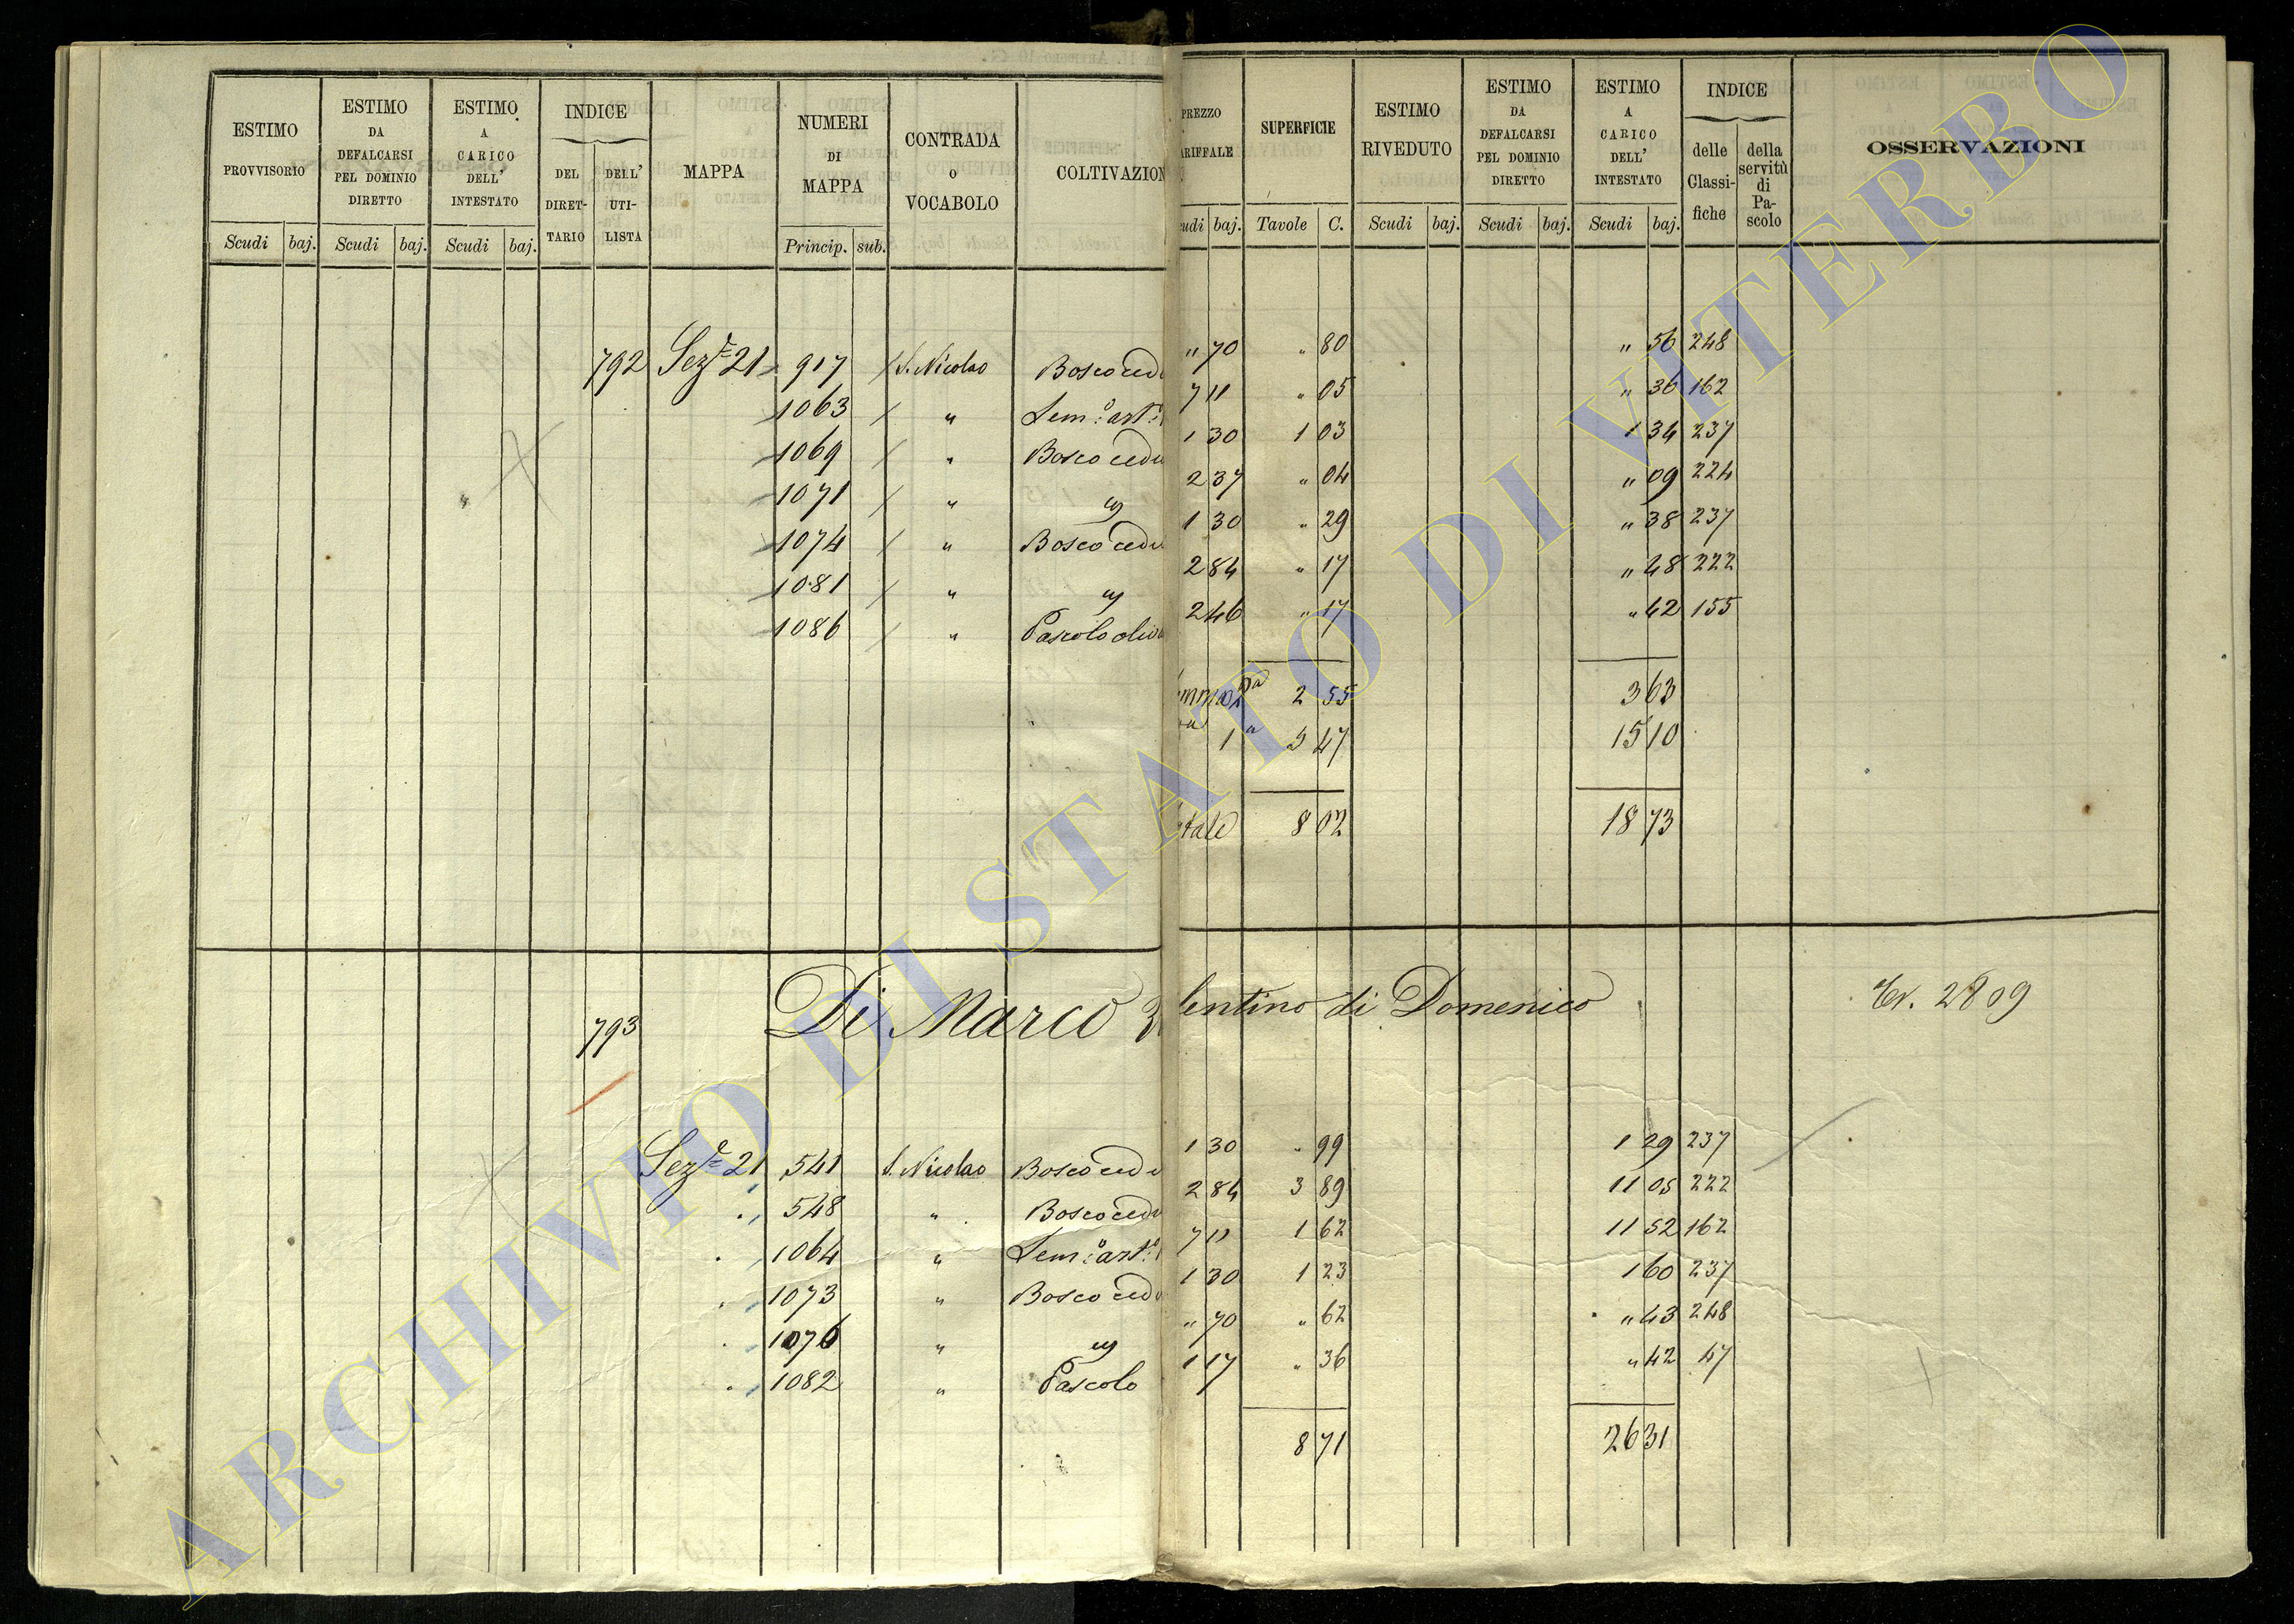 ESTIMO PROVVISORIO | ESTIMO DA DEFALCARSI PEL DOMINIO DIRETTO | ESTIMO A CARICO DELL' INTESTATO | INDICE DEL DIRET-TARIO | DELL' UTI-LISTA | MAPPA | NUMERI DI MAPPA | CONTRADA O VOCABOLO | COLTIVAZION | PREZZO ARIFFALE | SUPERFICIE | ESTIMO RIVEDUTO | ESTIMO DA DEFALCARSI PEL DOMINIO DIRETTO | ESTIMO A CARICO DELL' INTESTATO | INDICE delle Classi-fiche | della servitù di Pa-scolo | OSSERVAZIONI
Scudi baj. | Scudi baj. | Scudi baj. | Princip. sub. | udi baj. | Tavole C. | Scudi baj. | Scudi baj. | Scudi baj.
792 Sez.e 21 917 S. Nicolao Bosco cedu " 70 " 80 " 56 248
1063 " Sem.o art.o 7 11 " 05 " 36 162
1069 " Bosco cedu 1 30 1 03 1 34 237
1071 " " 2 37 " 04 " 09 224
1074 " Bosco cedu 1 30 " 29 " 38 237
1081 " " 2 84 " 17 " 48 222
1086 " Pascolo oliv 2 46 " 17 " 42 155
2a 2 55 3 63
1a 5 47 15 10
otale 8 02 18 73
793 Di Marco lentino di Domenico 2809
Sez.e 21 541 S. Nicolao Bosco cedu 1 30 " 99 1 29 237
" 548 " Bosco cedu 2 84 3 89 11 05 222
" 1064 " Sem.o art.o 7 11 1 62 11 52 162
" 1073 " Bosco cedu 1 30 1 23 1 60 237
" 1076 " " " 70 " 62 " 43 248
" 1082 " Pascolo 1 17 " 36 " 42 47
8 71 26 31
ARCHIVIO DI STATO DI VITERBO